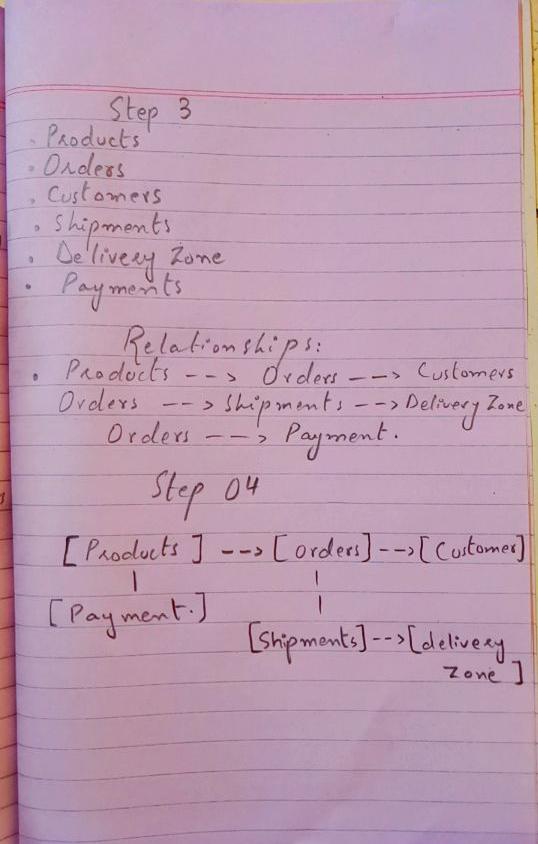 Step 3
. Products
. Orders
. Customers
. Shipments
. Delivery Zone
. Payments
Relationships:
. Products ---> Orders ---> Customers
Orders ---> Shipments ---> Delivery Zone
Orders ---> Payment.
Step 04
[Products] ---> [orders] ---> [Customer]
[Payment.]
[Shipments] ---> [delivery
Zone]